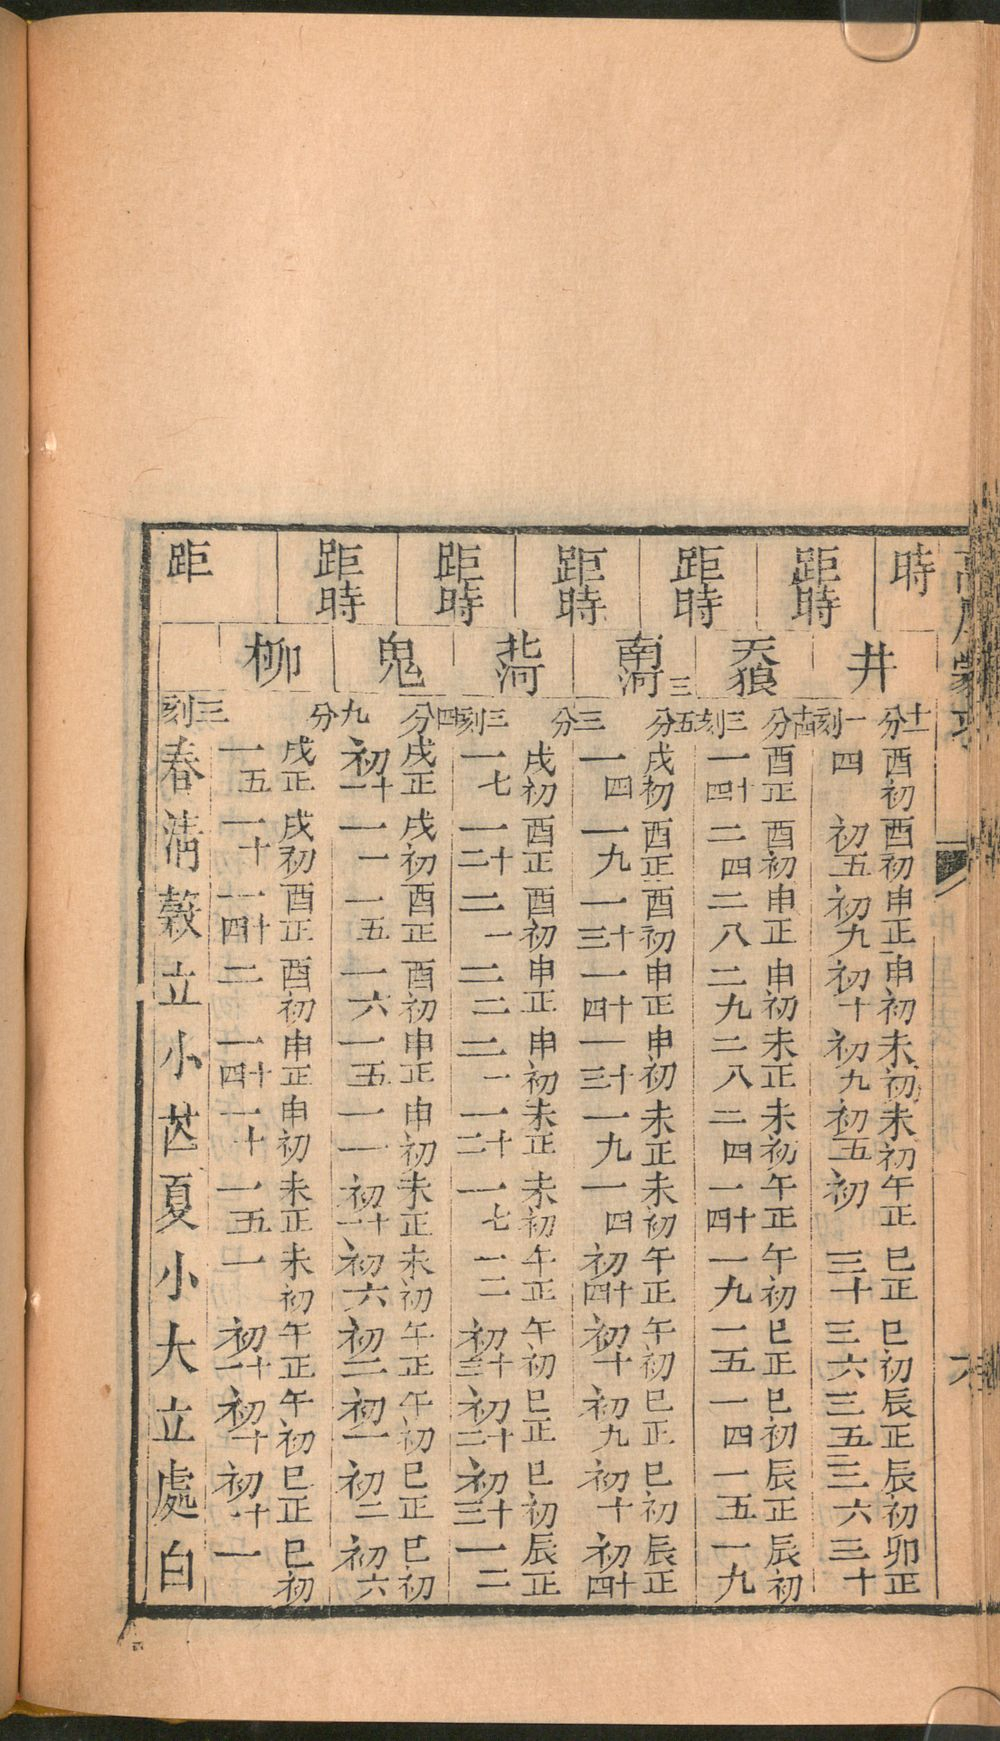 高厚蒙求
時 距時 距時 距時 距時 距時 距
井 天狼 南河三 北河 鬼 柳
十一分 一刻 十四分 三刻 五分 三分 三刻 四分 九分 三刻
酉初 酉初 申正 申初 未初 未初 午正 巳正 巳初 辰正 辰初 卯正
四 初五 初九 初十 初九 初五 初 三十 三六 三五 三六 三十
酉正 酉初 申正 申初 未正 未初 午正 午初 巳正 巳初 辰正 辰初
一十四 二四 二八 二九 二八 二四 一十四 一九 一五 一四 一五 一九
戌初 酉正 酉初 申正 申初 未正 未初 午正 午初 巳正 巳初 辰正
一四 一九 一十三 一十四 一十三 一九 一四 初十四 初十 初九 初十 初十四
戌初 酉正 酉初 申正 申初 未正 未初 午正 午初 巳正 巳初 辰正
一七 一十二 二一 二二 二一 一十二 一七 一二 初十三 初十二 初十三 一二
戌正 戌初 酉正 酉初 申正 申初 未正 未初 午正 午初 巳正 巳初
初十一 一一 一五 一六 一五 一一 初十一 初六 初二 初一 初二 初六
戌正 戌初 酉正 酉初 申正 申初 未正 未初 午正 午初 巳正 巳初
一五 一十 一十四 二 一十四 一十 一五 一 初十一 初十 初十一 一
春 清 穀 立 小 芒 夏 小 大 立 處 白